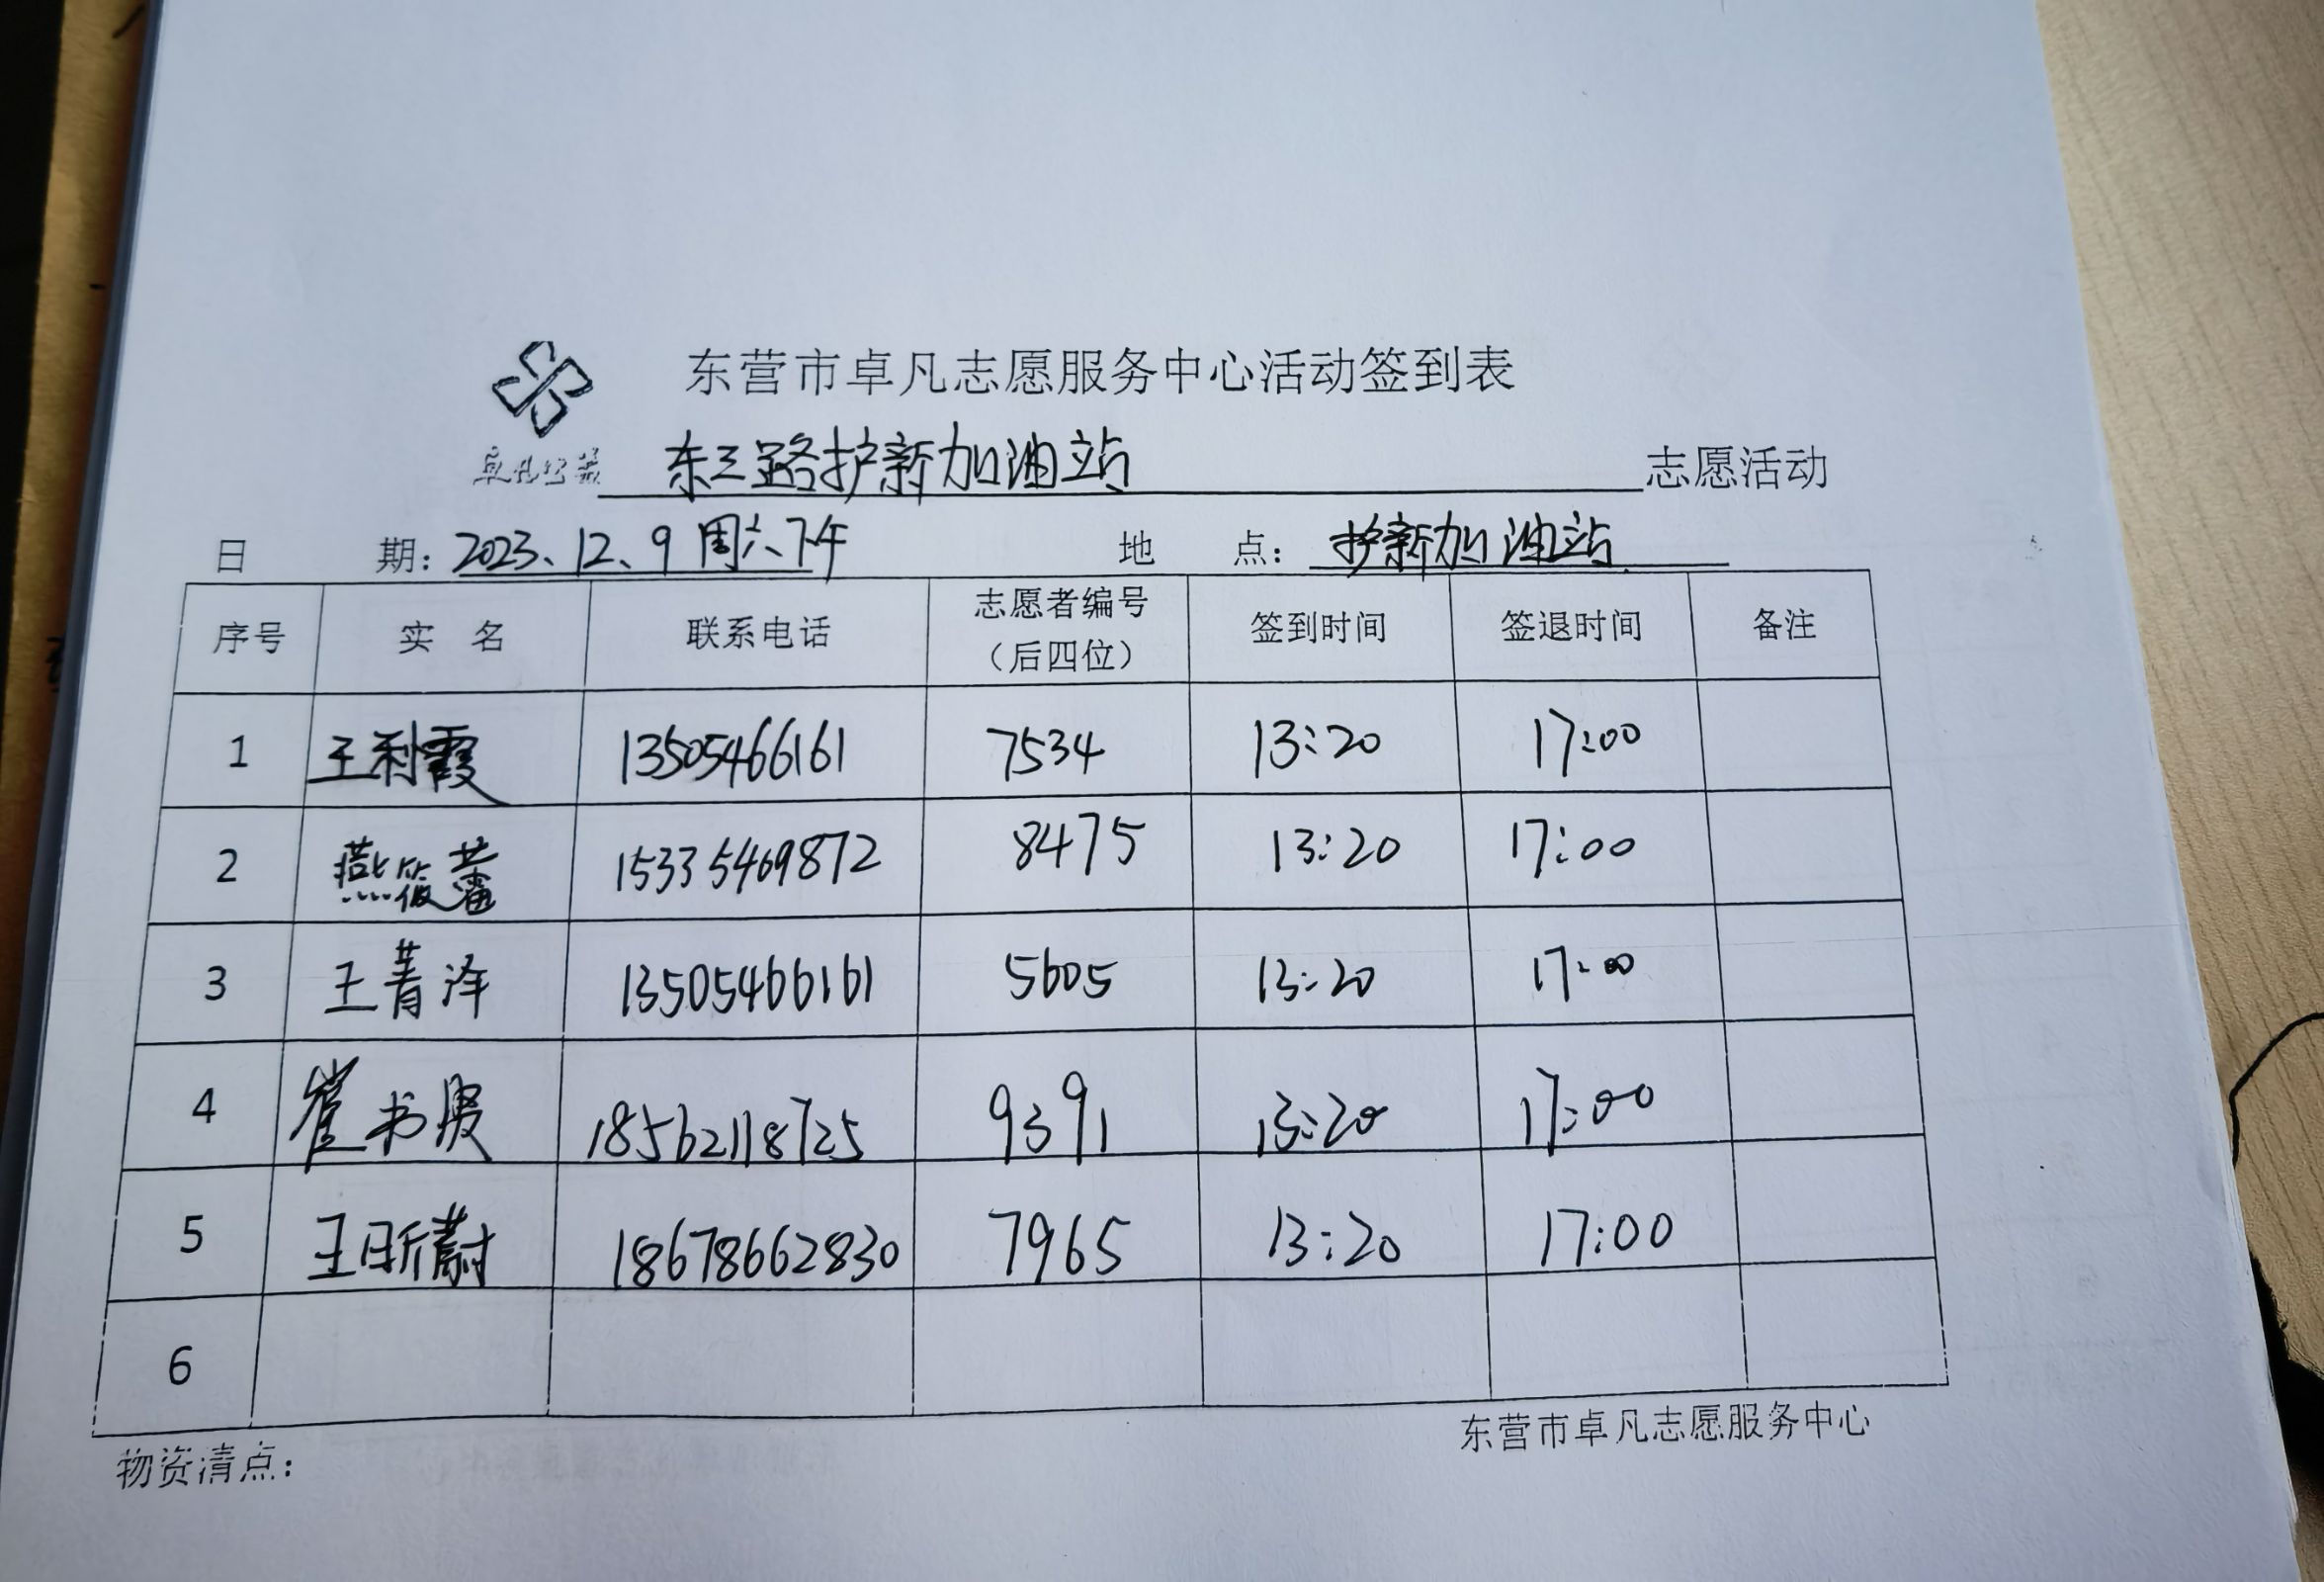 东营市卓凡志愿服务中心活动签到表
卓凡公益 东三路护新加油站 志愿活动
日 期：2023、12、9 周六下午 地 点：护新加油站
序号 实 名 联系电话 志愿者编号（后四位） 签到时间 签退时间 备注
1 王利霞 13505466161 7534 13:20 17:00
2 燕筱蕃 15335469872 8475 13:20 17:00
3 王菁泽 13505466161 5605 13:20 17:00
4 崔书 18562118725 9391 13:20 17:00
5 王昕蔚 18678662830 7965 13:20 17:00
6
东营市卓凡志愿服务中心
物资清点：